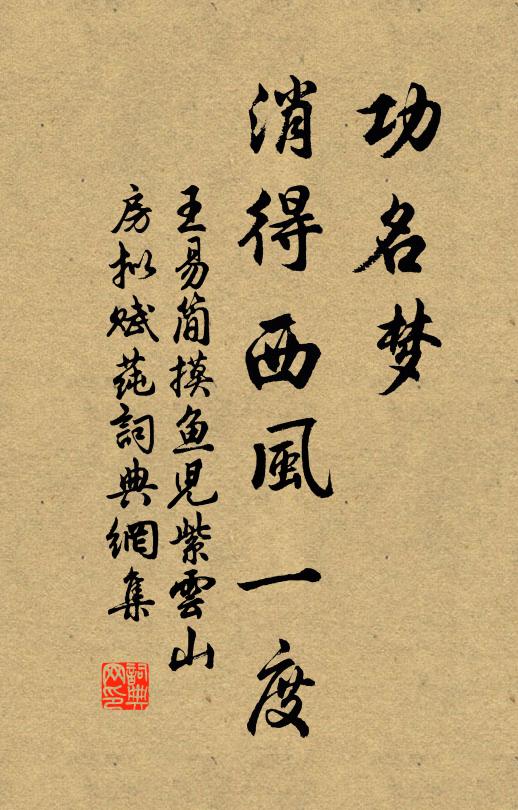 功名梦
消得西風一度
王易简摸鱼児紫雲山
房拟赋莼詞典網集
詞典网印